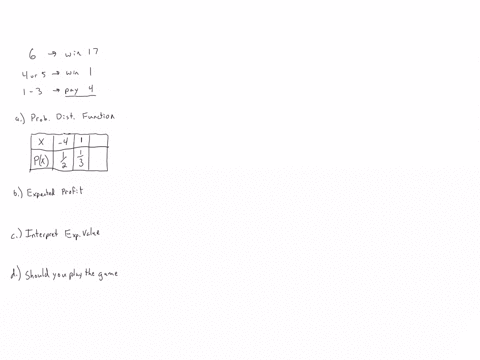 6 → win 17
4 or 5 → win 1
1 - 3 → pay 4
a.) Prob. Dist. Function
X -4 1
P(X) 1/2 1/3
b.) Expected Profit
c.) Interpret Exp. Value
d.) Should you play the game